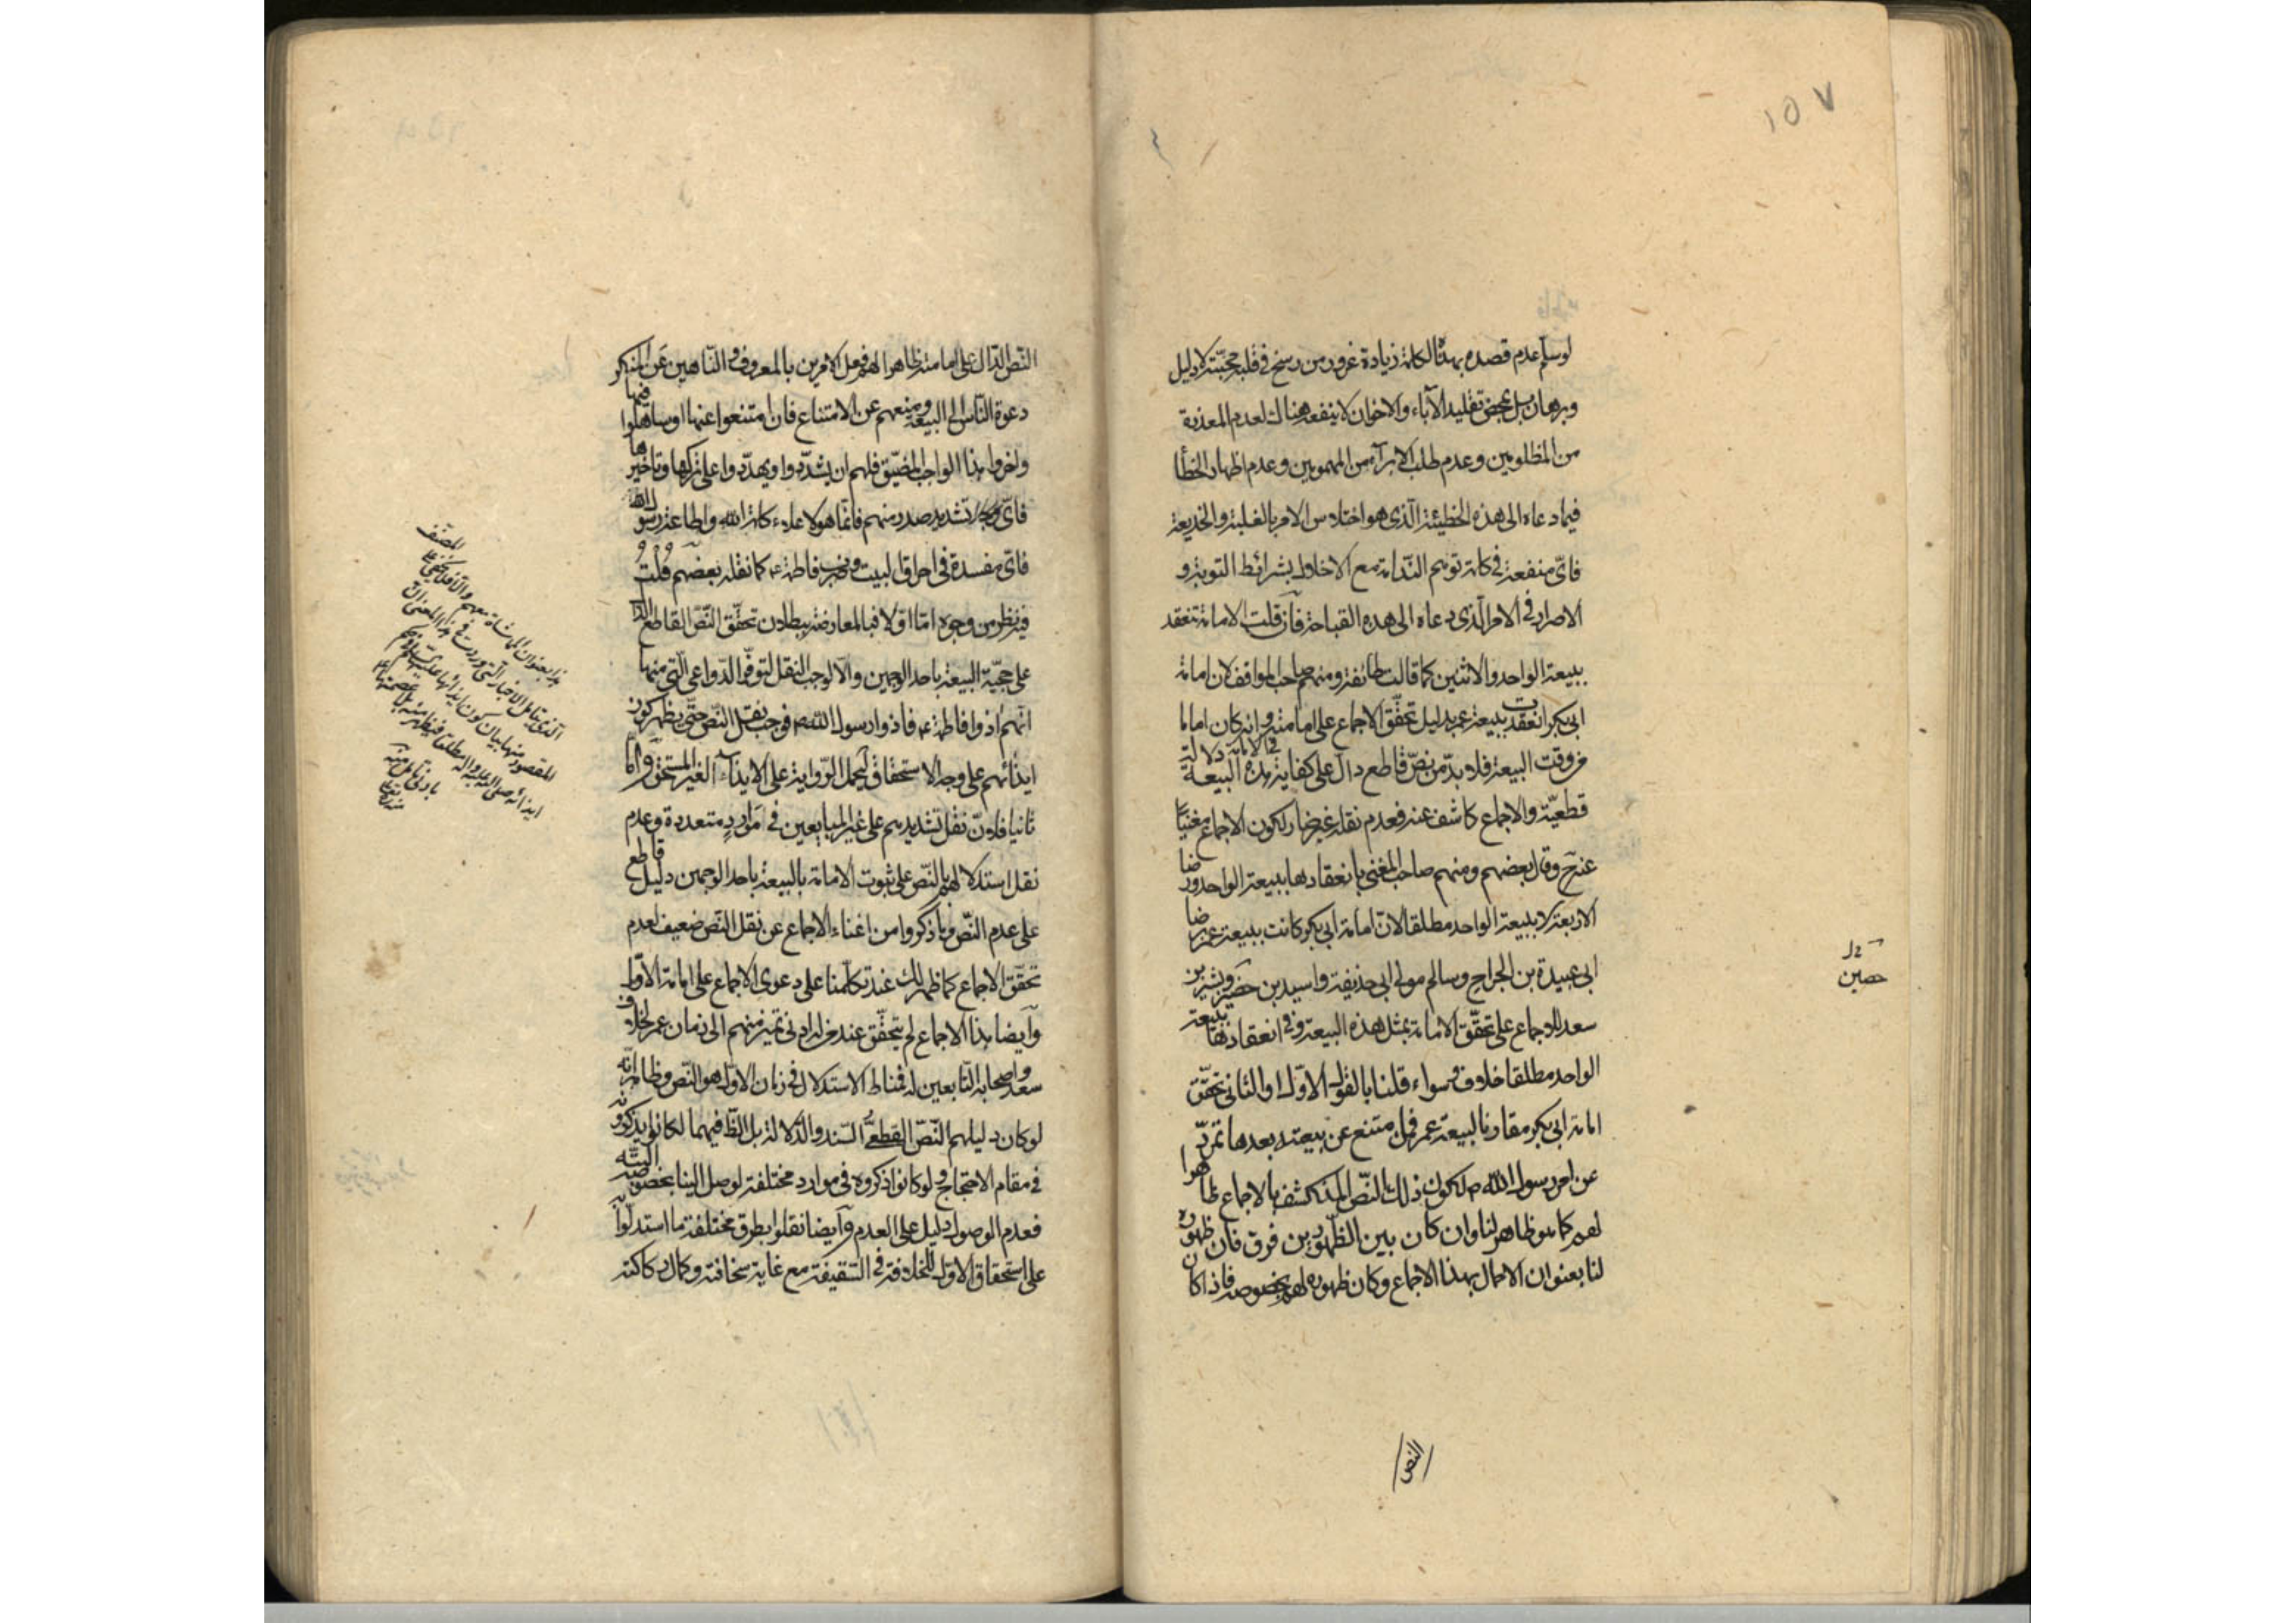 ١٥٧
لوسلم عدم قصده بهذا الكلام زيادة غرور من رسخ في قلبه محبته لا دليل
وبرهان بل بمحض تقليد الآباء والاخوان لا ينفعه هناك لعدم المعذرة
من المظلومين وعدم طلب الابراء من المهمومين وعدم اظهار الخطأ
فيما دعاه الى هذه الخطيئة الذي هو اختلاس الامر بالغلبة والخديعة
فاىّ منفعة في كلام توهم الندامة مع الاخلال بشرائط التوبة و
الاصرار في الامر الذي دعاه الى هذه القباحة فان قلت الامامة تنعقد
ببيعة الواحد والاثنين كما قالت طائفة ومنهم صاحب المواقف لان امامة
ابى بكر انعقدت ببيعة عمر بدليل تحقق الاجماع على امامته وانه كان اماما
من وقت البيعة فلا بدّ من نصّ قاطع دالّ على كفاية هذه البيعة في الامامة دلالة
قطعيّة والاجماع كاشف عنه فعدم نقله غير ضار لكون الاجماع مغنيا
عنه ح وقال بعضهم ومنهم صاحب المغنى بانعقادها ببيعة الواحد ورضا
الاربعة لا ببيعة الواحد مطلقا لان امامة ابى بكر كانت ببيعة عمر ورضا
ابى عبيدة بن الجراح وسالم مولى ابى حذيفة واسيد بن حضير وبشير بن
سعد للاجماع على تحقق الامامة بمثل هذه البيعة وفى انعقادها ببيعة
الواحد مطلقا خلاف وسواء قلنا بالقول الاوّل او الثانى تحقّق
امامة ابى بكر مقارنا لبيعة عمر فمن امتنع عن بيعته بعدها تمرّد
عن امر رسول الله ص لكون ذلك بالنّصّ المنكشف بالاجماع ظاهرا
لهم كما هو ظاهر لنا وان كان بين الظهورين فرق فان ظهوره
لنا بعنوان الاجمال بهذا الاجماع وكان ظهوره لهم بخصوصه فاذا كان
حصين
النص
النّص الدّال على امامته ظاهرا لهم فعل الآمرين بالمعروف والنّاهين عن المنكر
دعوة النّاس الى البيعة ومنعهم عن الامتناع فان امتنعوا عنها او ساهلوا فيها
واخروا هذا الواجب المضيّق فلهم ان يشدّدوا ويهدّدوا على تركها وتاخيرها
فاىّ تشديد صدر منهم فانما هو لاعلاء كلمة الله واطاعة رسول الله
فاىّ مفسدة في احراق البيت وضرب فاطمة ع كما نقله بعضهم قلت
فيه نظر من وجوه امّا اوّلا فبالمعارضة ببطلان تحقّق النّصّ القاطع الدال
على حجيّة البيعة باحد الوجهين والّا لوجب النقل لتوفّر الدّواعى الّتي منها
انّهم اذوا فاطمة ع فاذوا رسول الله ص فوجب نقل النّص حتّى يظهر كون
ايذائهم على وجه الاستحقاق ليحمل الرّواية على الايذاء الغير المستحق وامّا
ثانيا فلانّ نقل تشديدهم على غير المبايعين في موارد متعددة وعدم
نقل استدلالهم بالنّص على ثبوت الامامة بالبيعة باحد الوجهين دليل قاطع
على عدم النّص وما ذكروا من اغناء الاجماع عن نقل النّص ضعيف لعدم
تحقّق الاجماع كما ظهر لك عند تكلّمنا على دعوى الاجماع على امامة الاوّل
وايضا هذا الاجماع لم يتحقّق عند من له ادنى تميز منهم الى زمان عمر لخلاف
سعد واصحابه التّابعين له فمناط الاستدلال في زمان الاوّل هو النّص وظاهر انّه
لو كان دليلهم النّصّ القطعىّ السّند والدّلالة بل الظّنّ فيهما لكانوا يذكرونه
في مقام الاحتجاج ولو كانوا ذكروه في موارد مختلفة لوصل الينا بخصوصه البتّه
فعدم الوصول دليل على العدم وايضا نقلوا بطرق مختلفة ما استدلّوا به
على استحقاق الاوّل للخلافة في السّقيفة مع غاية سخافته وكمال ركاكته